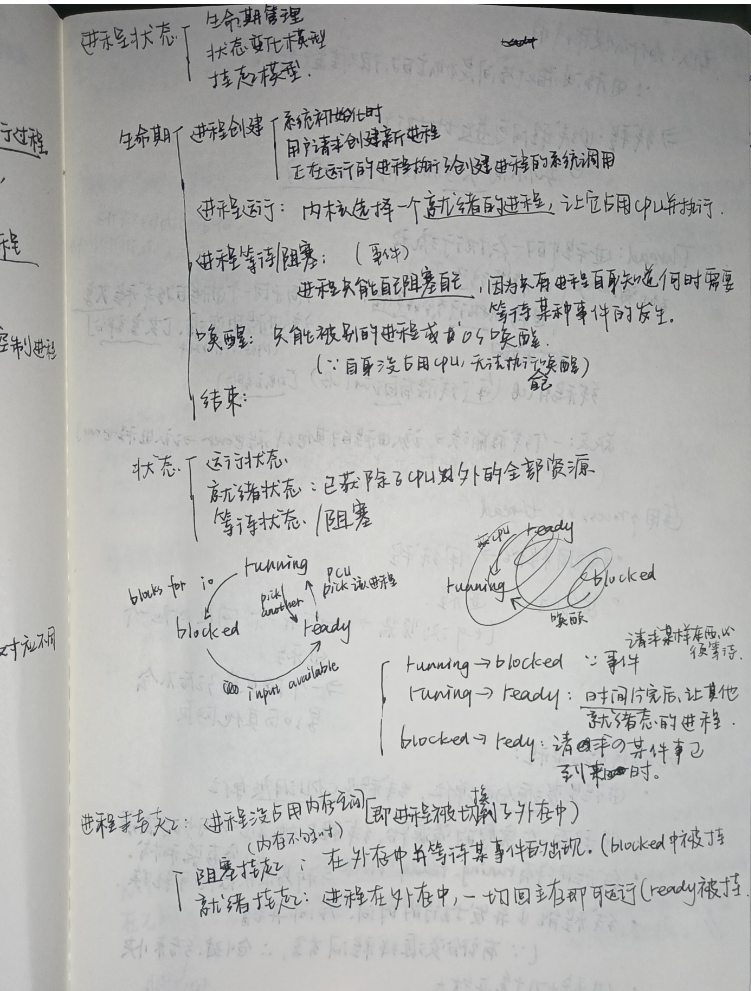 进程状态
生命期管理
状态变化模型
挂起模型.
行过程
程
控制进程
对应不同
生命期
进程创建
系统初始化时
用户请求创建新进程
正在运行的进程执行了创建进程的系统调用
进程运行：内核选择一个就绪的进程，让它占用CPU并执行.
进程等待/阻塞：(事件)
进程只能自己阻塞自己，因为只有进程自身知道何时需要
等待某种事件的发生。
唤醒：只能被别的进程或 OS唤醒.
(∵自身没占用CPU，无法执行唤醒)
结束：
状态
运行状态
就绪状态：已获除了CPU以外的全部资源
等待状态/阻塞
running
blocks for io
blocked
pick another
PCU
pick该进程
ready
input available
ready
CPU
running
blocked
唤醒
running→blocked ∵事件
请求某样东西，必
须等待.
runing→ready：时间片完后，让其他
就绪态的进程.
blocked→redy：请求的某件事已
到来时。
进程挂起：进程没占用内存空间[即进程被切换到了外存中)
(内存不够时)
阻塞挂起：在外存中并等待某事件的出现.(blocked中被挂
就绪挂起：进程在外存中，一切回主存即可运行(ready被挂.